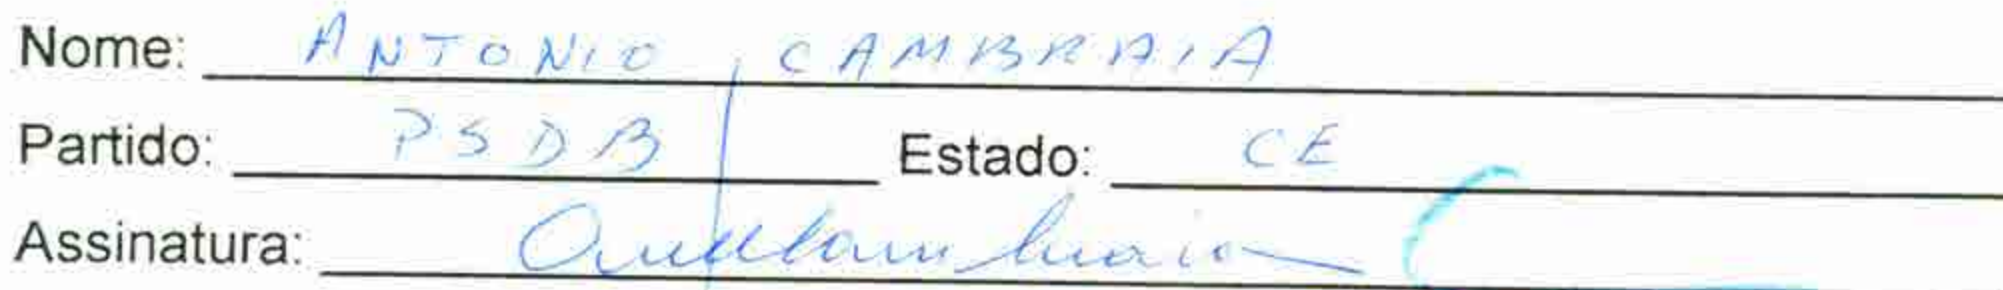 Nome: ANTONIO CAMBRAIA
Partido: PSDB Estado: CE
Assinatura: